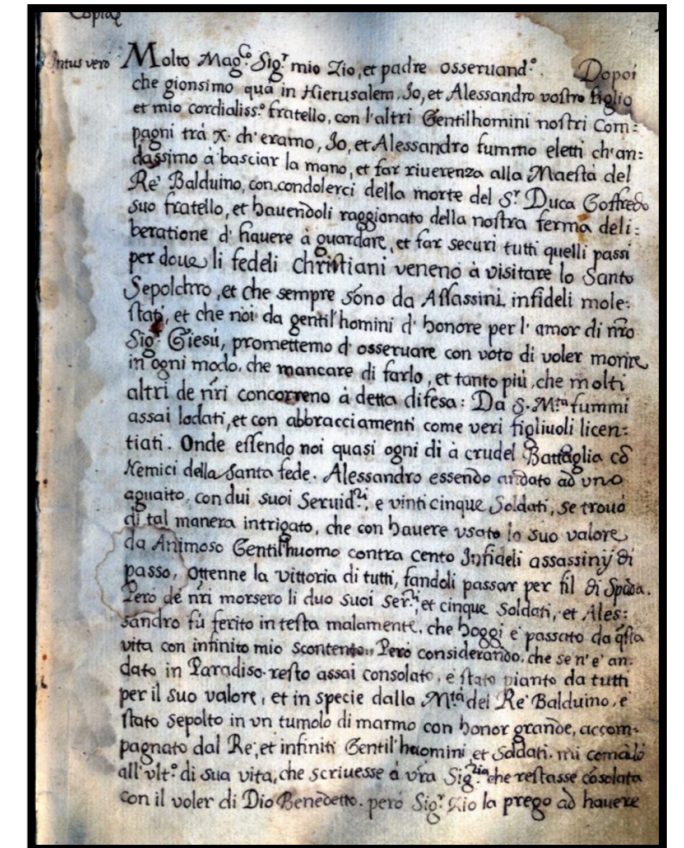 Copia
Intus vero Molto Mag.co Sig.r mio Zio, et padre osservand.o. Dopoi
che gionsimo quà in Hierusalem, Io, et Alessandro vostro figlio
et mio cordialiss.o fratello, con l'altri Gentilhomini nostri Com:
pagni trà X. ch'eramo, Io, et Alessandro fummo eletti ch'an:
dassimo à basciar la mano, et far riverenza alla Maestà del
Rè Balduino, con condolerci della morte del S.r Duca Goffredo
suo fratello, et havendoli raggionato della nostra ferma deli:
beratione d'havere à guardare, et far securi tutti quelli passi
per dove li fedeli Christiani veneno à visitare lo Santo
Sepolchro, et che sempre sono da Assassini infideli mole:
stati, et che noi da gentil'homini d'honore per l'amor di nr̃o
Sig.r Giesù, promettemo d'osservare con voto di voler morire
in ogni modo, che mancare di farlo, et tanto più, che molti
altri de nr̃i concorreno à detta difesa: Da S. M.tà fummi
assai lodati, et con abbracciamenti come veri figliuoli licen:
tiati. Onde essendo noi quasi ogni dì à crudel Battaglia cõ
Nemici della Santa fede. Alessandro essendo andato ad uno
aguaito, con dui suoi Servid.ri, e vinti cinque Soldati, se trovò
di tal manera intrigato, che con havere usato lo suo valore
da Animoso Gentil'huomo contra cento Infideli assassinij di
passo, Ottenne la vittoria di tutti, fandoli passar per fil di Spada.
Però de nr̃i morsero li duo suoi Ser.ri, et cinque Soldati, et Ales:
sandro fù ferito in testa malamente, che hoggi e' passato da q̃sta
vita con infinito mio scontento. Però considerando, che se n'e' an:
dato in Paradiso resto assai consolato, e stato pianto da tutti
per il suo valore, et in specie dalla M.tà del Rè Balduino, e'
stato sepolto in un tumolo di marmo con honor grande, accom:
pagnato dal Rè, et infiniti Gentil'huomini et Soldati. mi comãdò
all'ult.o di sua vita, che scrivesse à vr̃a Sig.ria che restasse cõsolata
con il voler di Dio Benedetto. però Sig.r Zio la prego ad havere